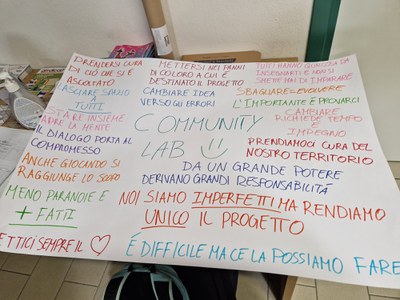 PRENDERSI CURA
DI CIÒ CHE SI È
ASCOLTATO
LASCIARE SPAZIO
A
TUTTI
STARE INSIEME
APRE LA MENTE
IL DIALOGO PORTA AL
COMPROMESSO
ANCHE GIOCANDO SI
RAGGIUNGE LO SCOPO
MENO PARANOIE E
+ FATTI
METTICI SEMPRE IL
METTERSI NEI PANNI
DI COLORO A CUI È
DESTINATO IL PROGETTO
CAMBIARE IDEA
VERSO GLI ERRORI
COMMUNITY
LAB
TUTTI HANNO QUALCOSA DA
INSEGNARTI E NON SI
SMETTE MAI DI IMPARARE
SBAGLIARE=EVOLVERE
L'IMPORTANTE È PROVARCI
CAMBIARE
RICHIEDE TEMPO
E
IMPEGNO
PRENDIAMOCI CURA DEL
NOSTRO TERRITORIO
DA UN GRANDE POTERE
DERIVANO GRANDI RESPONSABILITÁ
NOI SIAMO IMPERFETTI MA RENDIAMO
UNICO IL PROGETTO
É DIFFICILE MA CE LA POSSIAMO FARE